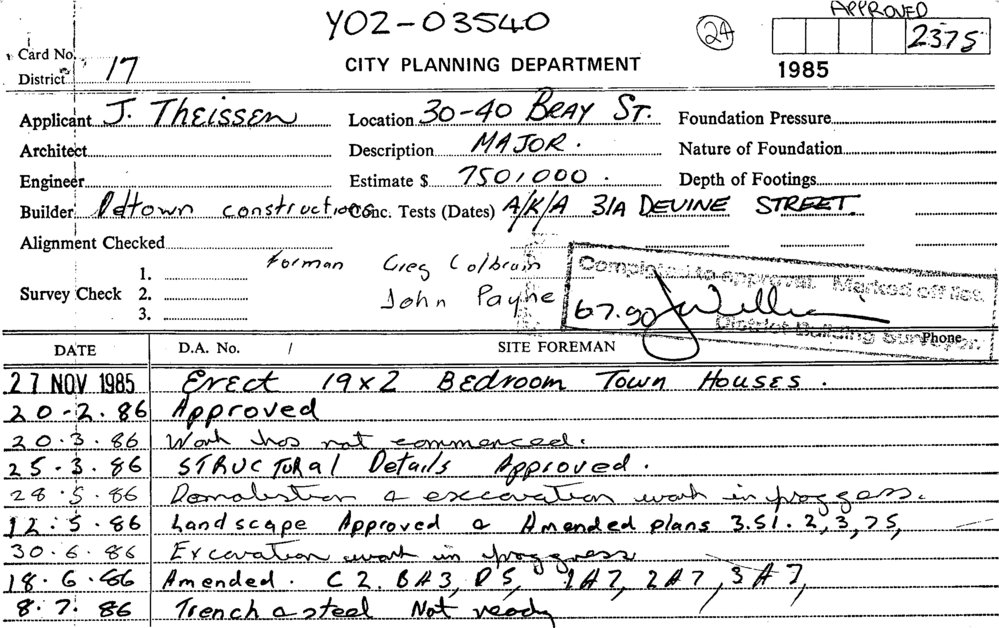 Y02-03540
24
APPROVED
2375
Card No.
District 17
CITY PLANNING DEPARTMENT
1985
Applicant J. Theissen Location 30-40 BRAY ST. Foundation Pressure
Architect Description MAJOR. Nature of Foundation
Engineer Estimate $ 750,000. Depth of Footings
Builder constructions Conc. Tests (Dates) A/K/A 31A DEVINE STREET.
Alignment Checked
Forman Greg
Survey Check 1.
2. John Payne
3.
Completed to approval. Marked off list.
6.7.90
District Building Surveyor.
DATE D.A. No. / SITE FOREMAN Phone
27 NOV 1985 Erect 19x2 Bedroom Town Houses.
20-2.86 Approved
20.3.86 Work has not commenced.
25.3.86 STRUCTURal Details Approved.
28.5.86 & excavation work in proggess.
12.5.86 Landscape Approved & Amended plans 3.S1.2,3,75,
30.6.86 Excavation work in proggress
18.6.86 Amended. C2. BA3, D5, 1A7, 2A7, 3A7,
8.7.86 Trench & steel Not ready